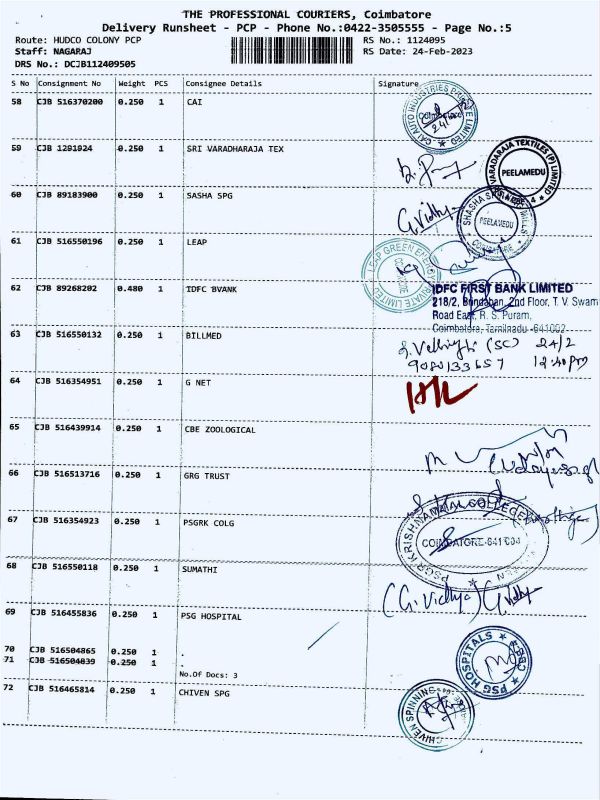 THE PROFESSIONAL COURIERS, Coimbatore
Delivery Runsheet - PCP - Phone No.:0422-3505555 - Page No.:5
Route: HUDCO COLONY PCP
RS No.: 1124095
Staff: NAGARAJ
RS Date: 24-Feb-2023
DRS No.: DCJB112409505
S No Consignment No Weight PCS Consignee Details Signature
58 CJB 516370200 0.250 1 CAI
59 CJB 1291924 0.250 1 SRI VARADHARAJA TEX
PEELAMEDU
60 CJB 89183900 0.250 1 SASHA SPG
G.Vidhya
PEELAMEDU
COIMBATORE
61 CJB 516550196 0.250 1 LEAP
LEAP GREEN ENERGY PRIVATE LIMITED
62 CJB 89268202 0.480 1 IDFC BVANK
IDFC FIRST BANK LIMITED
218/2, Brindaban, 2nd Floor, T. V. Swam
Road East, R. S. Puram,
Coimbatore, Tamilnadu -641002
63 CJB 516550132 0.250 1 BILLMED
24/2
12:40pm
64 CJB 516354951 0.250 1 G NET
65 CJB 516439914 0.250 1 CBE ZOOLOGICAL
66 CJB 516513716 0.250 1 GRG TRUST
67 CJB 516354923 0.250 1 PSGRK COLG
COIMBATORE-641 004
68 CJB 516550118 0.250 1 SUMATHI
(G.Vidhya) G.Vidhya
69 CJB 516455836 0.250 1 PSG HOSPITAL
PSG HOSPITALS
70 CJB 516504865 0.250 1 .
71 CJB 516504839 0.250 1 .
No.Of Docs: 3
72 CJB 516465814 0.250 1 CHIVEN SPG
CHIVEN SPINNING